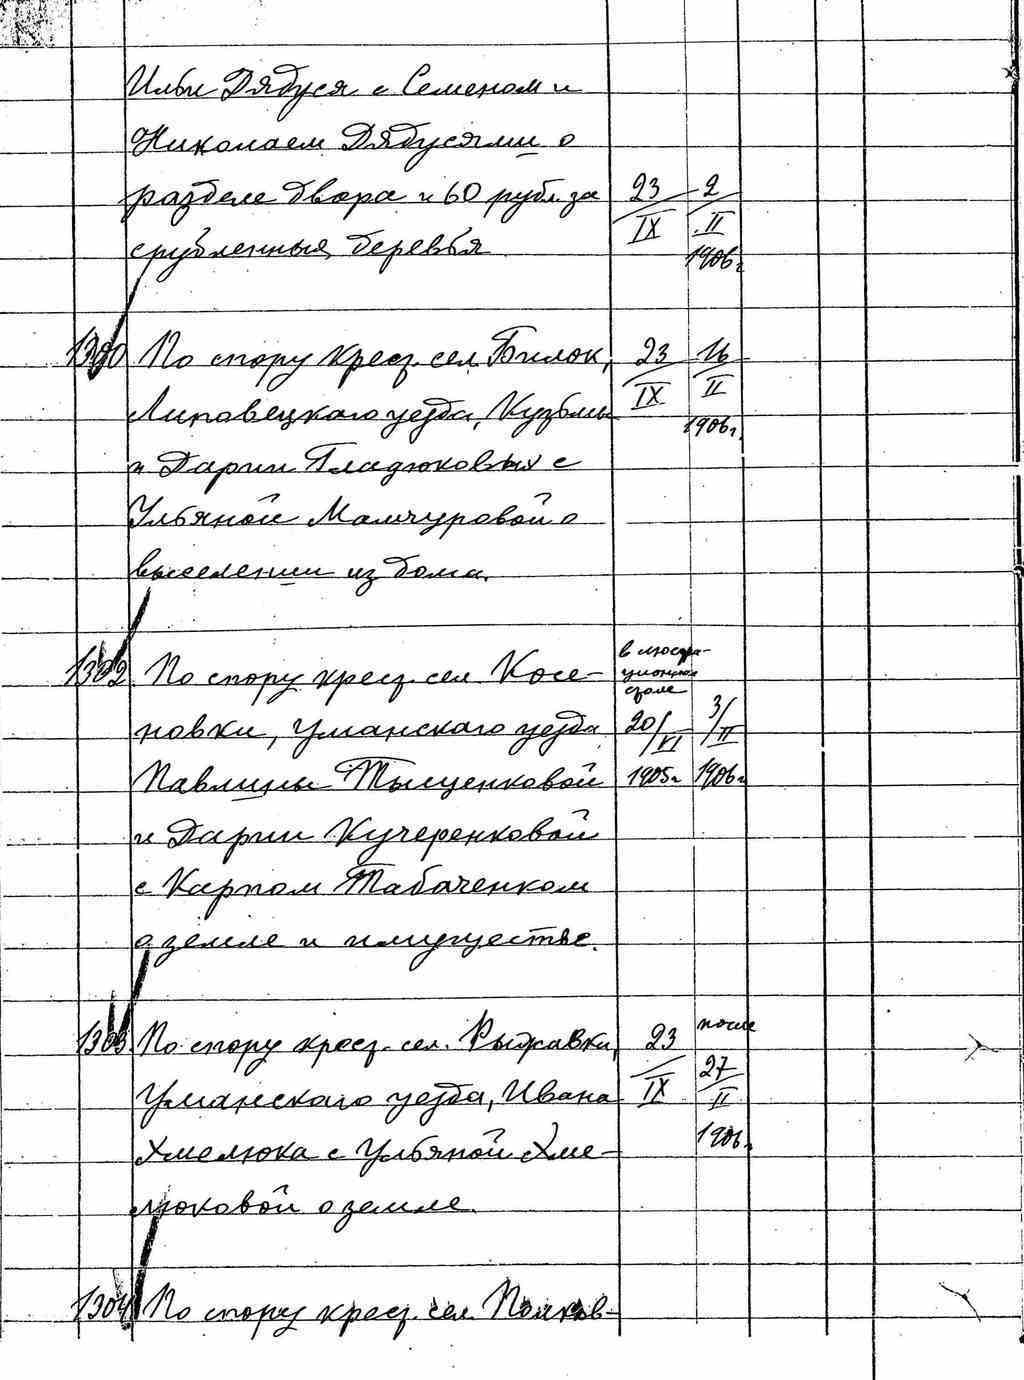 Ильи Дядуся с Семеном и
Николаем Дядусями о
разделе двора и 60 рубл. за 23 2
срубленныя деревья IX II
1906 г.
1300 По спору крест. сел. Билок, 23 16
Липовецкаго уезда, Кузьмы IX II
1906 г.
и Дарии Гладюковых с
Ульяной Мамчуровой о
выселении из дома.
в люстра-
ционном
столе
1302 По спору крест. сел. Косе-
новки, Уманскаго уезда 20/VI 3/II
Павлины Тыщенковой 1905 г. 1906 г.
и Дарии Кучеренковой
с Карпом Табаченком
о земле и имуществе.
1303 По спору крест. сел. Рыжавки, 23 после
27
Уманскаго уезда, Ивана IX II
1906 г.
Хмелюка с Ульяной Хме-
люковой о земле.
1304 По спору крест. сел.